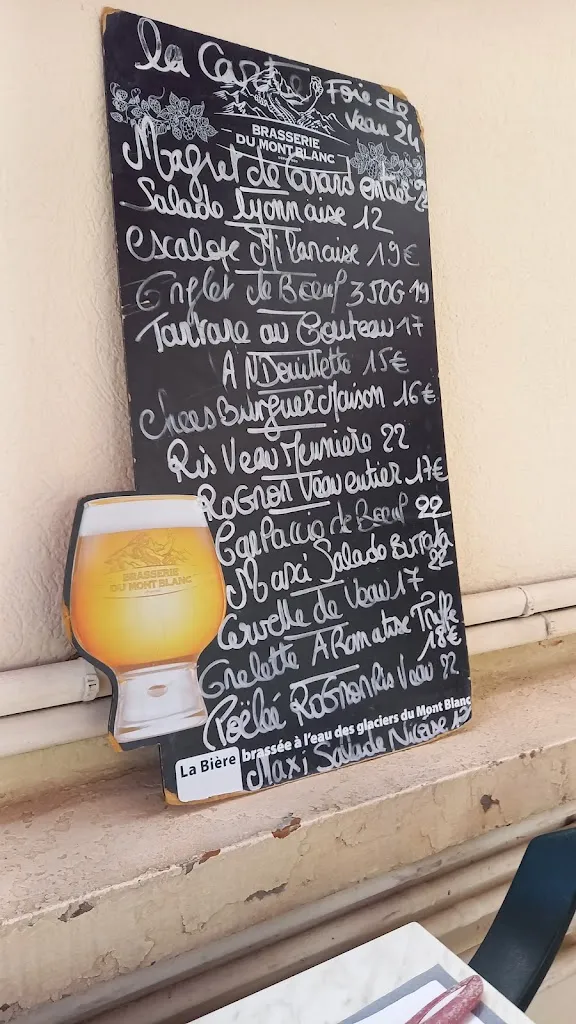 la Carte
Foie de
Veau 24
BRASSERIE
DU MONT BLANC
Magret de Canard entier 2
Salade Lyonnaise 12
Escalope Milanaise 19€
Onglet de Boeuf 350G 19
Tartare au Couteau 17
ANDouillette 15€
Chees Burguer Maison 16€
Ris Veau Meunière 22
RoGnon Veau entier 17€
CarPaccio de Boeuf 22
Maxi Salade Burrata
22
Cervelle de Veau 17
Omelette ARomatisé Truffe
18€
Poëlée RoGnon Ris Veau 22
BRASSERIE
DU MONT BLANC
La Bière brassée à l'eau des glaciers du Mont Blanc
Maxi Salade Niçoise